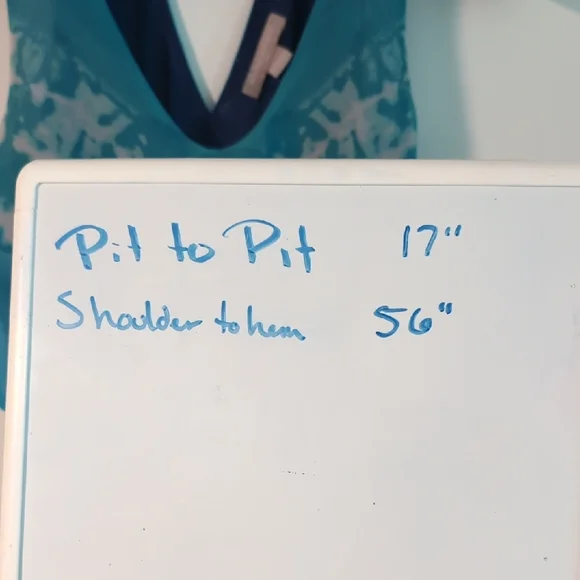 Pit to Pit 17"
Shoulder to hem 56"